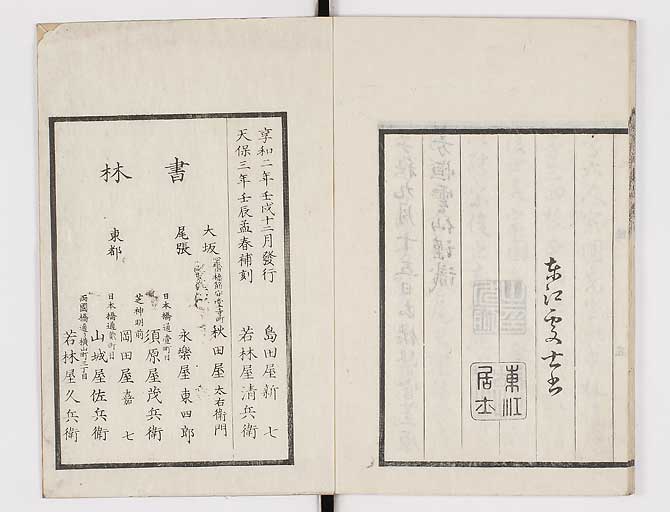 東江
居士
享和二年壬戌十二月發行 島田屋新七
天保三年壬辰孟春補刻 若林屋清兵衛
大坂 秋田屋太右衛門
尾張 永樂屋東四郎
書林
日本橋通壹町目
須原屋茂兵衛
芝神明前
岡田屋嘉七
東都
日本橋通貳町目
山城屋佐兵衛
両國橋通横山町三丁目
若林屋久兵衛